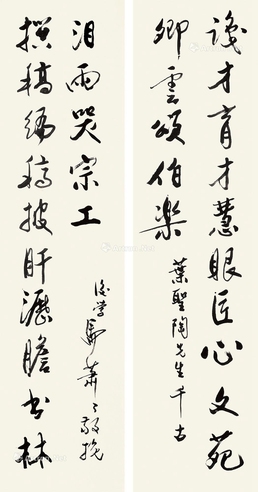 識才育才慧眼匠心文苑
卿雲頌伯樂
葉聖陶先生千古
撰稿編稿披肝瀝膽書林
泪雨哭宗工
後學馬蕭蕭敬挽